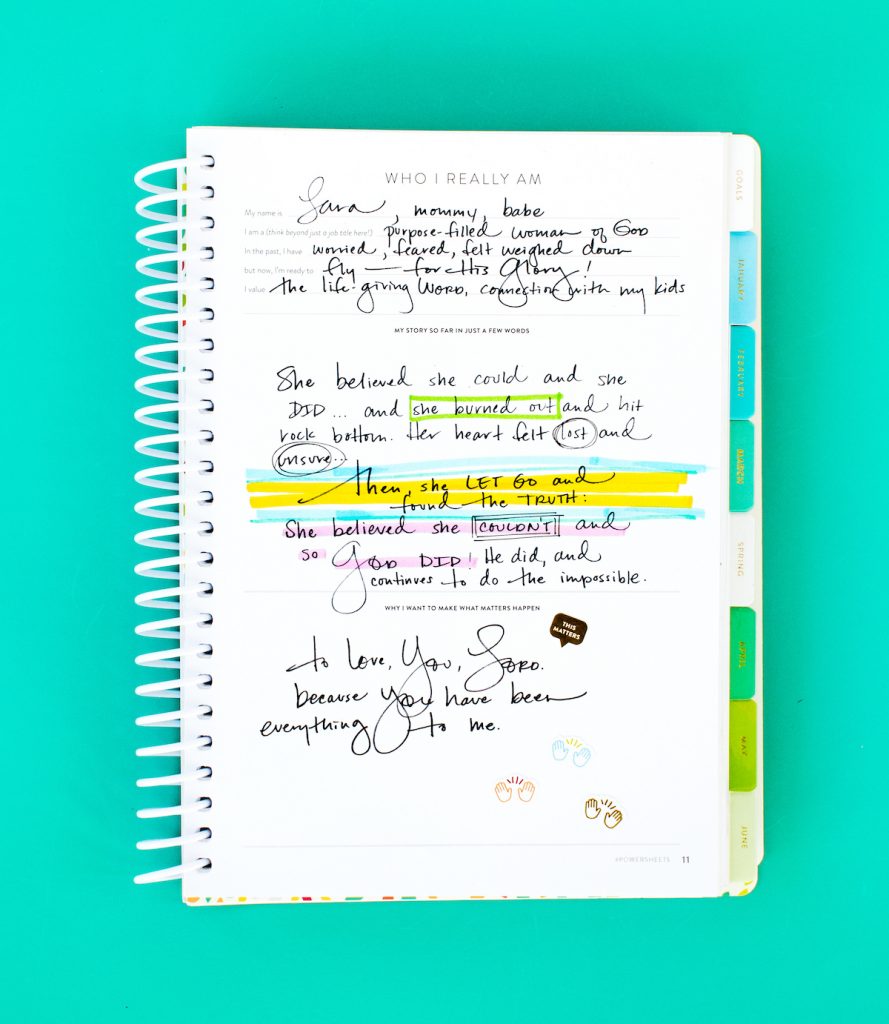 WHO I REALLY AM
My name is Lara, mommy, babe
I am a (think beyond just a job title here!) purpose-filled woman of GOD
In the past, I have worried, feared, felt weighed down
but now, I'm ready to fly — for His Glory!
I value the life-giving WORD, connection with my kids
MY STORY SO FAR IN JUST A FEW WORDS
She believed she could and she
DID... and she burned out and hit
rock bottom. Her heart felt lost and
unsure...
Then, she LET GO and
found the TRUTH:
She believed she COULDN'T and
so GOD DID! He did, and
continues to do the impossible.
WHY I WANT TO MAKE WHAT MATTERS HAPPEN
THIS
MATTERS
to love, You, LORD.
because you have been
everything to me.
#POWERSHEETS 11
GOALS
JANUARY
FEBRUARY
MARCH
SPRING
APRIL
MAY
JUNE